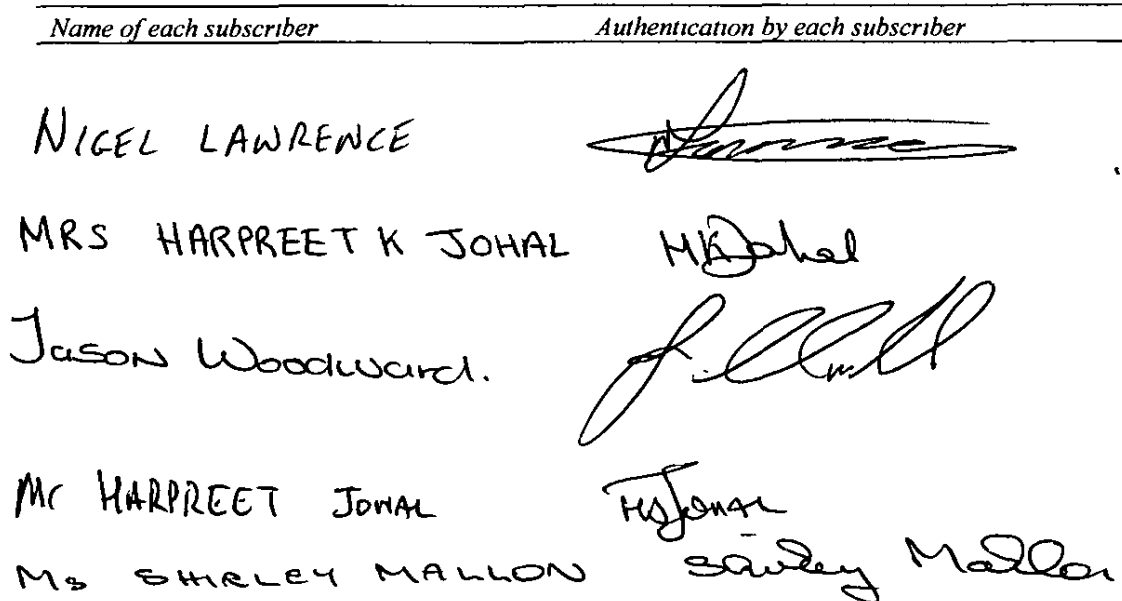 Name of each subscriber Authentication by each subscriber
NIGEL LAWRENCE
MRS HARPREET K JOHAL HKJohal
Jason Woodward.
Mr HARPREET JOHAL HSJOHAL
Ms SHIRLEY MALLON Shirley Mallon